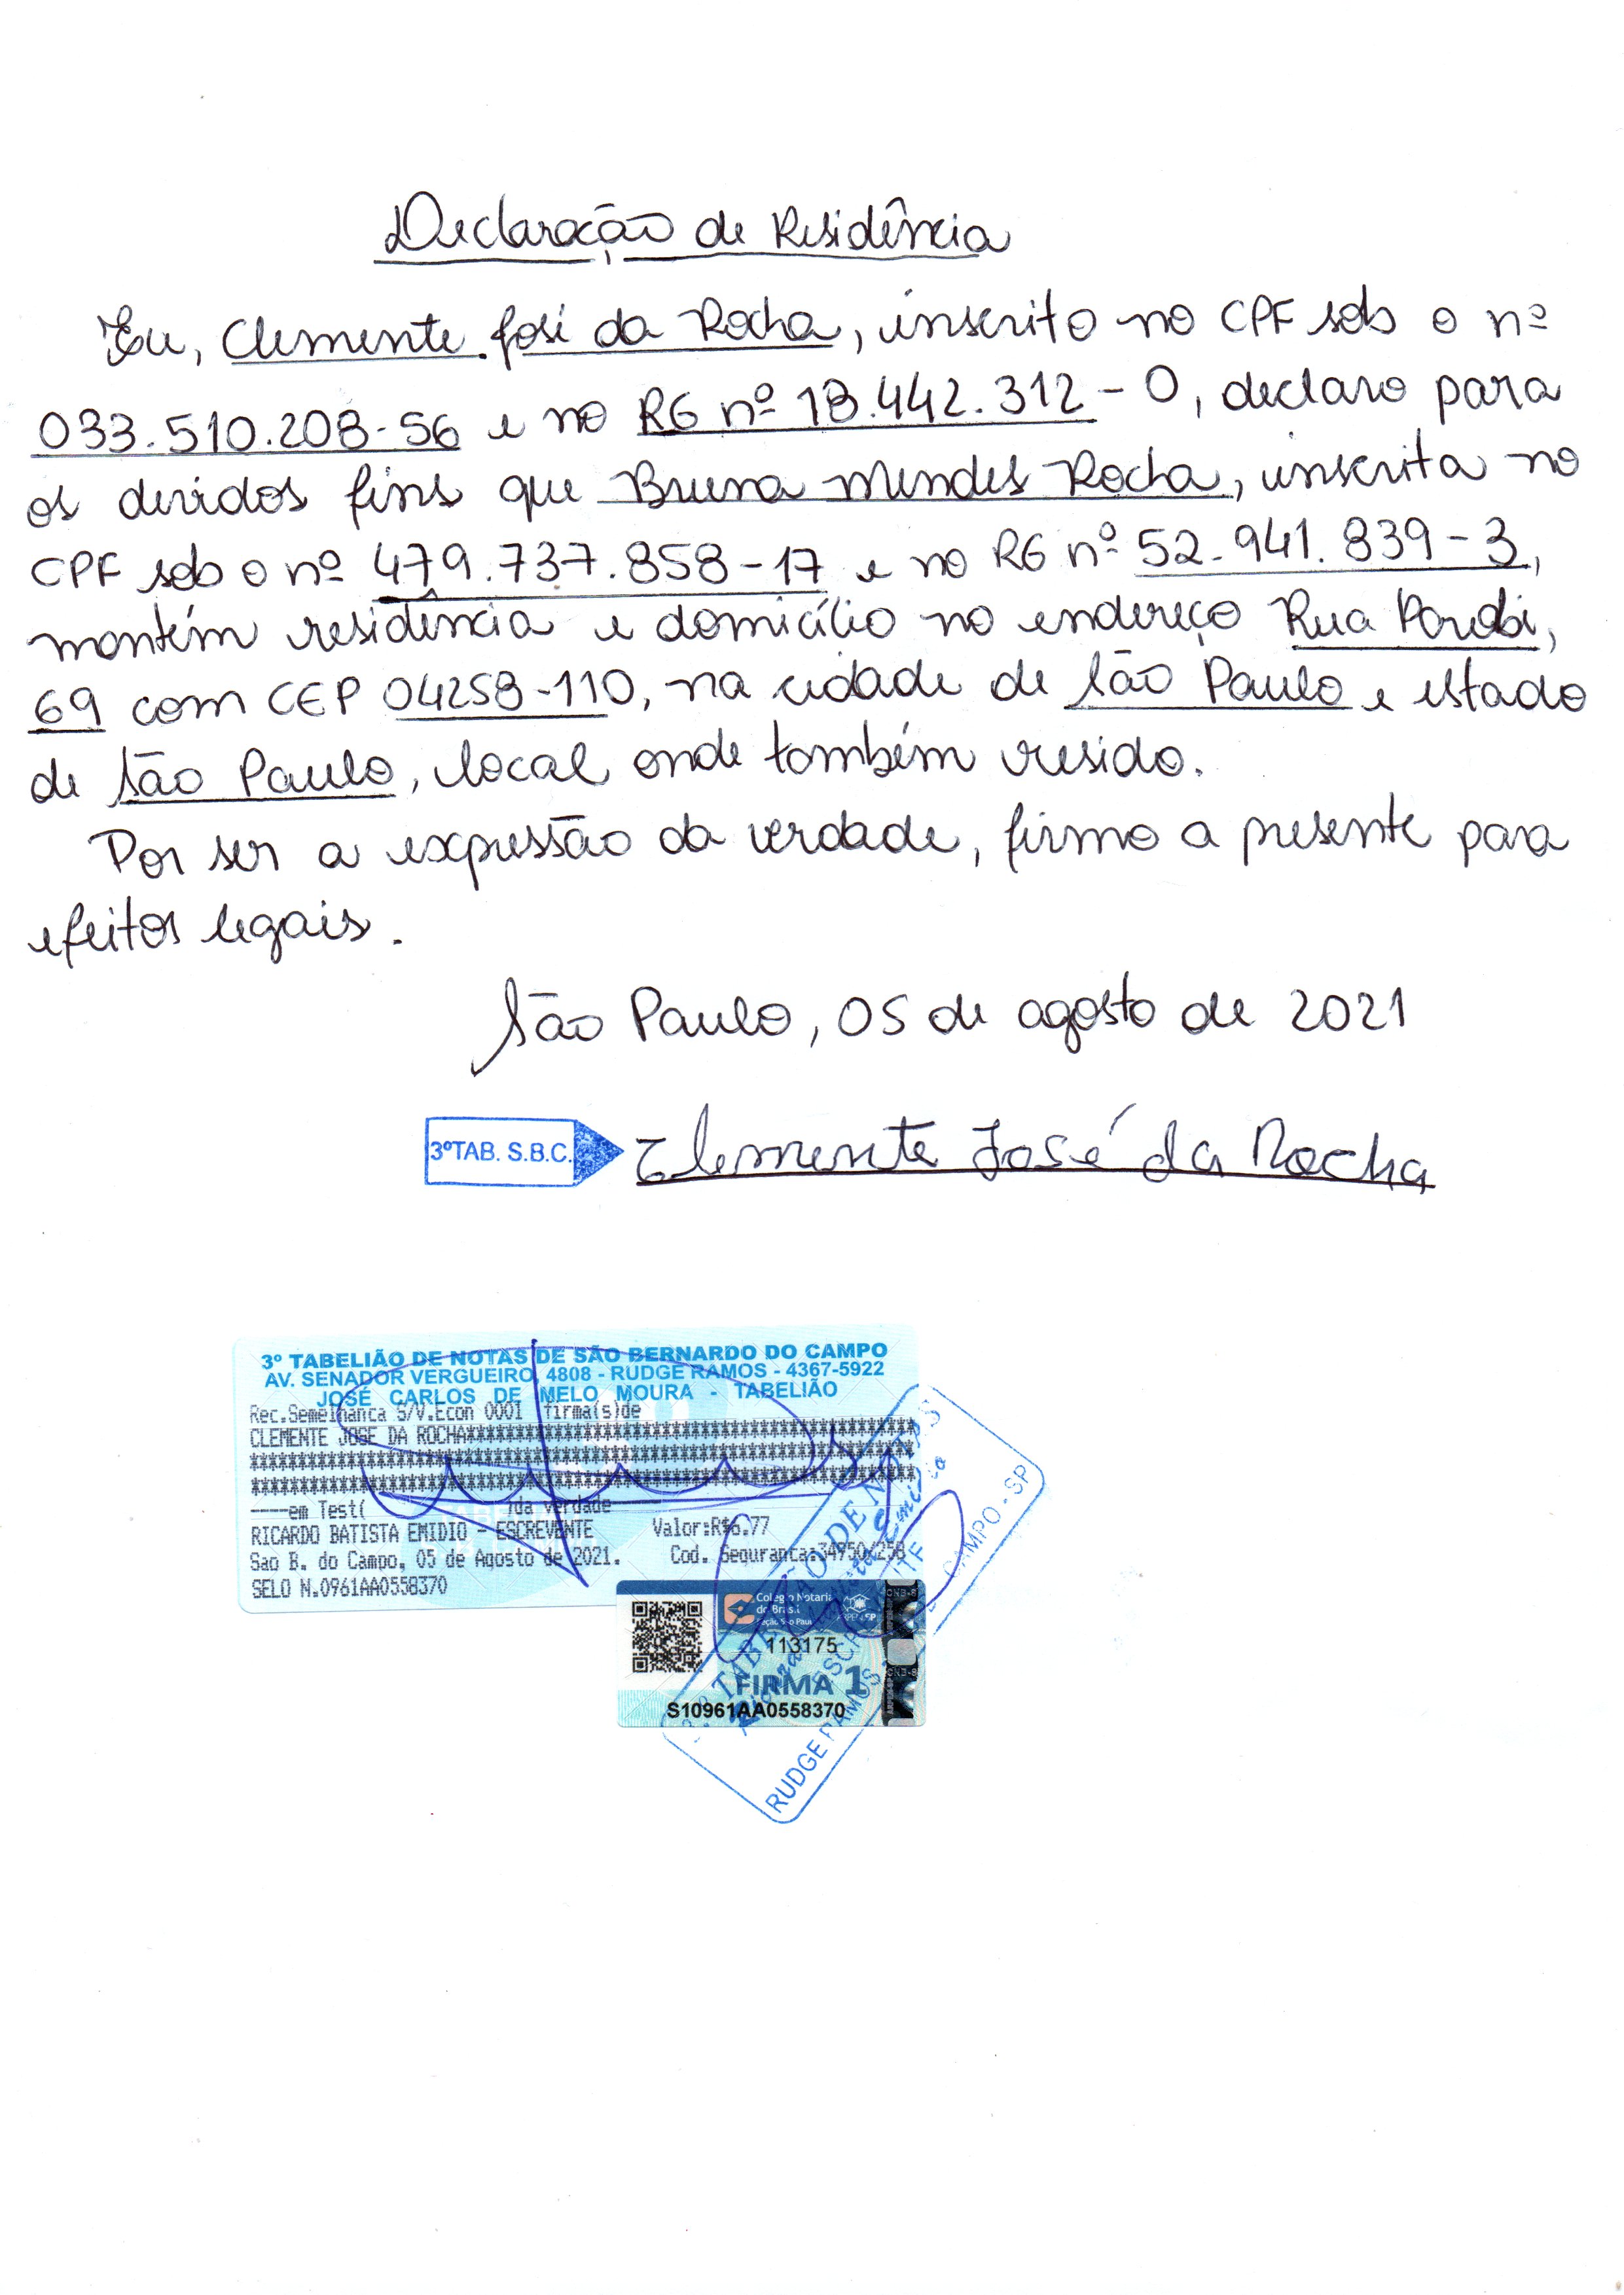 Declaração de Residência
Eu, Clemente José da Rocha, inscrito no CPF sob o nº
033.510.208-56 e no RG nº 18.442.312-0, declaro para
os devidos fins que Bruna Mendes Rocha, inscrita no
CPF sob o nº 479.737.858-17 e no RG nº 52.941.839-3,
mantém residência e domicílio no endereço Rua Parobi,
69 com CEP 04258-110, na cidade de São Paulo e estado
de São Paulo, local onde também resido.
Por ser a expressão da verdade, firmo a presente para
efeitos legais.
São Paulo, 05 de agosto de 2021
3ºTAB. S.B.C.
Clemente José da Rocha
3º TABELIÃO DE NOTAS DE SÃO BERNARDO DO CAMPO
AV. SENADOR VERGUEIRO, 4808 - RUDGE RAMOS - 4367-5922
JOSÉ CARLOS DE MELO MOURA - TABELIÃO
Rec.Semelhanca S/V.Econ 0001 firma(s)de
CLEMENTE JOSE DA ROCHA
----em Test( )da verdade
RICARDO BATISTA EMIDIO - ESCREVENTE Valor:R$6.77
Sao B. do Campo, 05 de Agosto de 2021. Cod. Seguranca:
SELO N.0961AA0558370
Colégio Notarial
do Brasil
Seção São Paulo
ARPEN SP
CNB-S
113175
FIRMA 1
S10961AA0558370
TABELIÃO DE NOTAS
ESCREVENTE
RUDGE RAMOS
CAMPO - SP